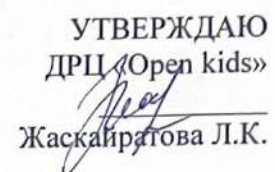 УТВЕРЖДАЮ
ДРЦ «Open kids»
Жаскайратова Л.К.